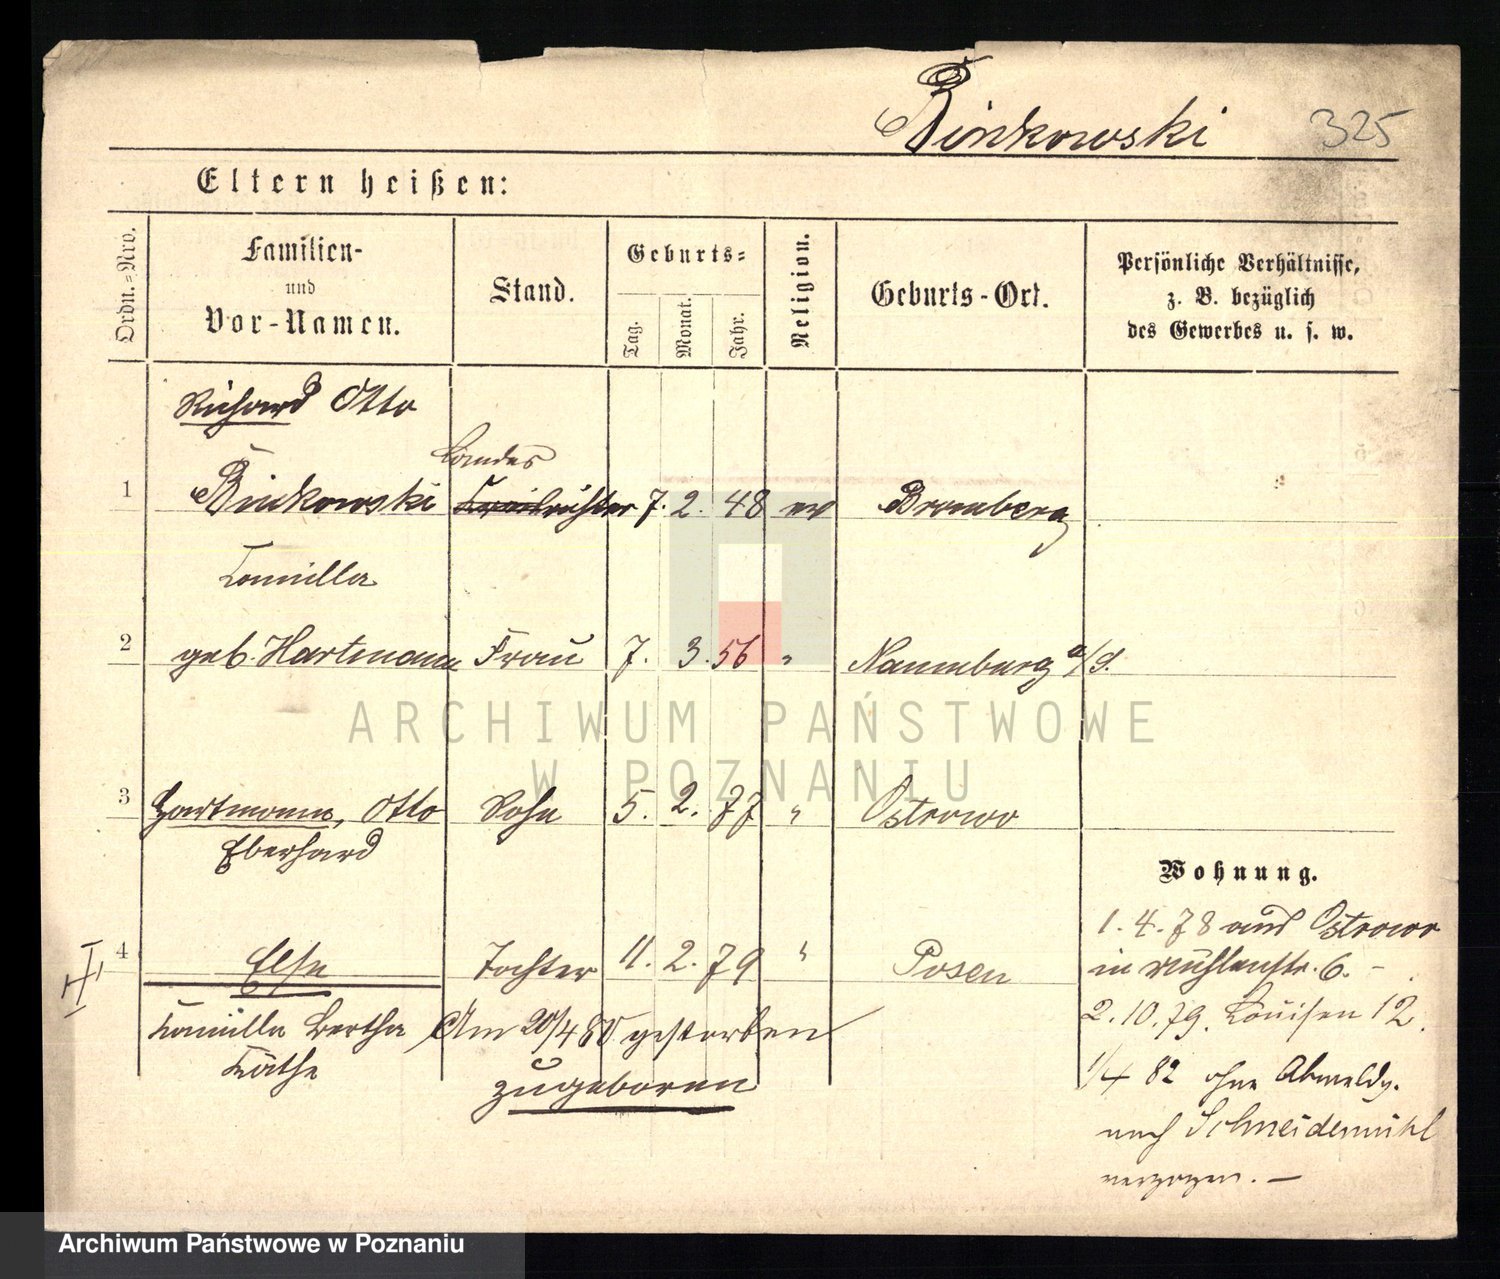 Binkowski 325
Eltern heißen:
Ordn.-Nro.
Familien-
und
Vor-Namen.
Stand.
Geburts-
Tag.
Monat.
Jahr.
Religion.
Geburts-Ort.
Persönliche Verhältnisse,
z. B. bezüglich
des Gewerbes u. s. w.
Richard Otto
Landes
1 Binkowski richter 7. 2. 48 ev Bromberg
Camilla
2 geb. Hartmann Frau 7. 3. 56 " Naumburg a/S.
3 Hartmann, Otto Sohn 5. 2. 77 " Ostrowo
Eberhard
Wohnung.
4 Else Tochter 11. 2. 79 " Posen
1. 4. 78 aus Ostrowo
in Mühlenstr. 6. -
Camilla Bertha Am 20/4 80 gestorben
2. 10. 79. Louisen 12.
Käthe
zugeboren
1/4 82 ohne Abmeldg.
nach Schneidemühl
verzogen. -
ARCHIWUM PAŃSTWOWE
W POZNANIU
Archiwum Państwowe w Poznaniu